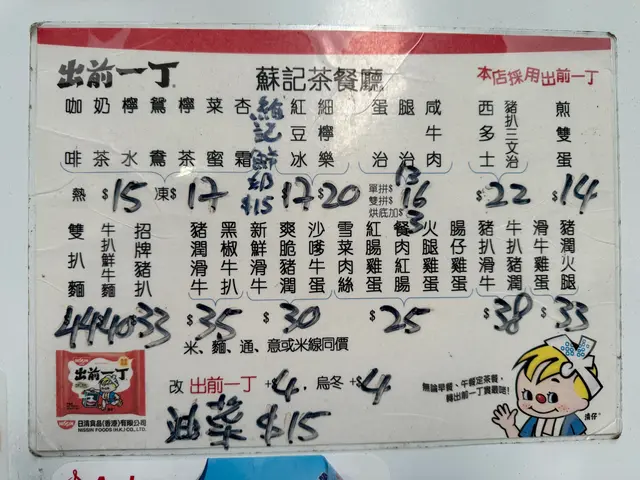 出前一丁
蘇記茶餐廳
本店採用出前一丁
咖啡
奶茶
檸水
鴛鴦
檸茶
菜蜜
杏霜
維記鮮奶 $15
紅豆冰
細檸樂
蛋治
腿治
咸牛肉
西多士
豬扒三文治
煎雙蛋
熱 $15 凍$ 17 $17 $20
單拼$ 13
雙拼$ 16
烘底加$ 3
$22 $14
雙扒麵
牛扒鮮牛麵
招牌豬扒
豬潤滑牛
黑椒牛扒
新鮮滑牛
爽脆豬潤
沙嗲牛蛋
雪菜肉絲
紅腸雞蛋
餐肉紅腸
火腿雞蛋
腸仔雞蛋
豬扒滑牛
牛扒豬潤
滑牛雞蛋
豬潤火腿
44 40 33 $35 $30 $25 $38 $33
米、麵、通、意或米線同價
改 出前一丁 +$4, 烏冬 +$4
油菜 $15
出前一丁
NISSIN 日清食品(香港)有限公司
NISSIN FOODS (H.K.) CO., LTD.
無論早餐、午餐定茶餐,
轉出前一丁實最啱!
清仔